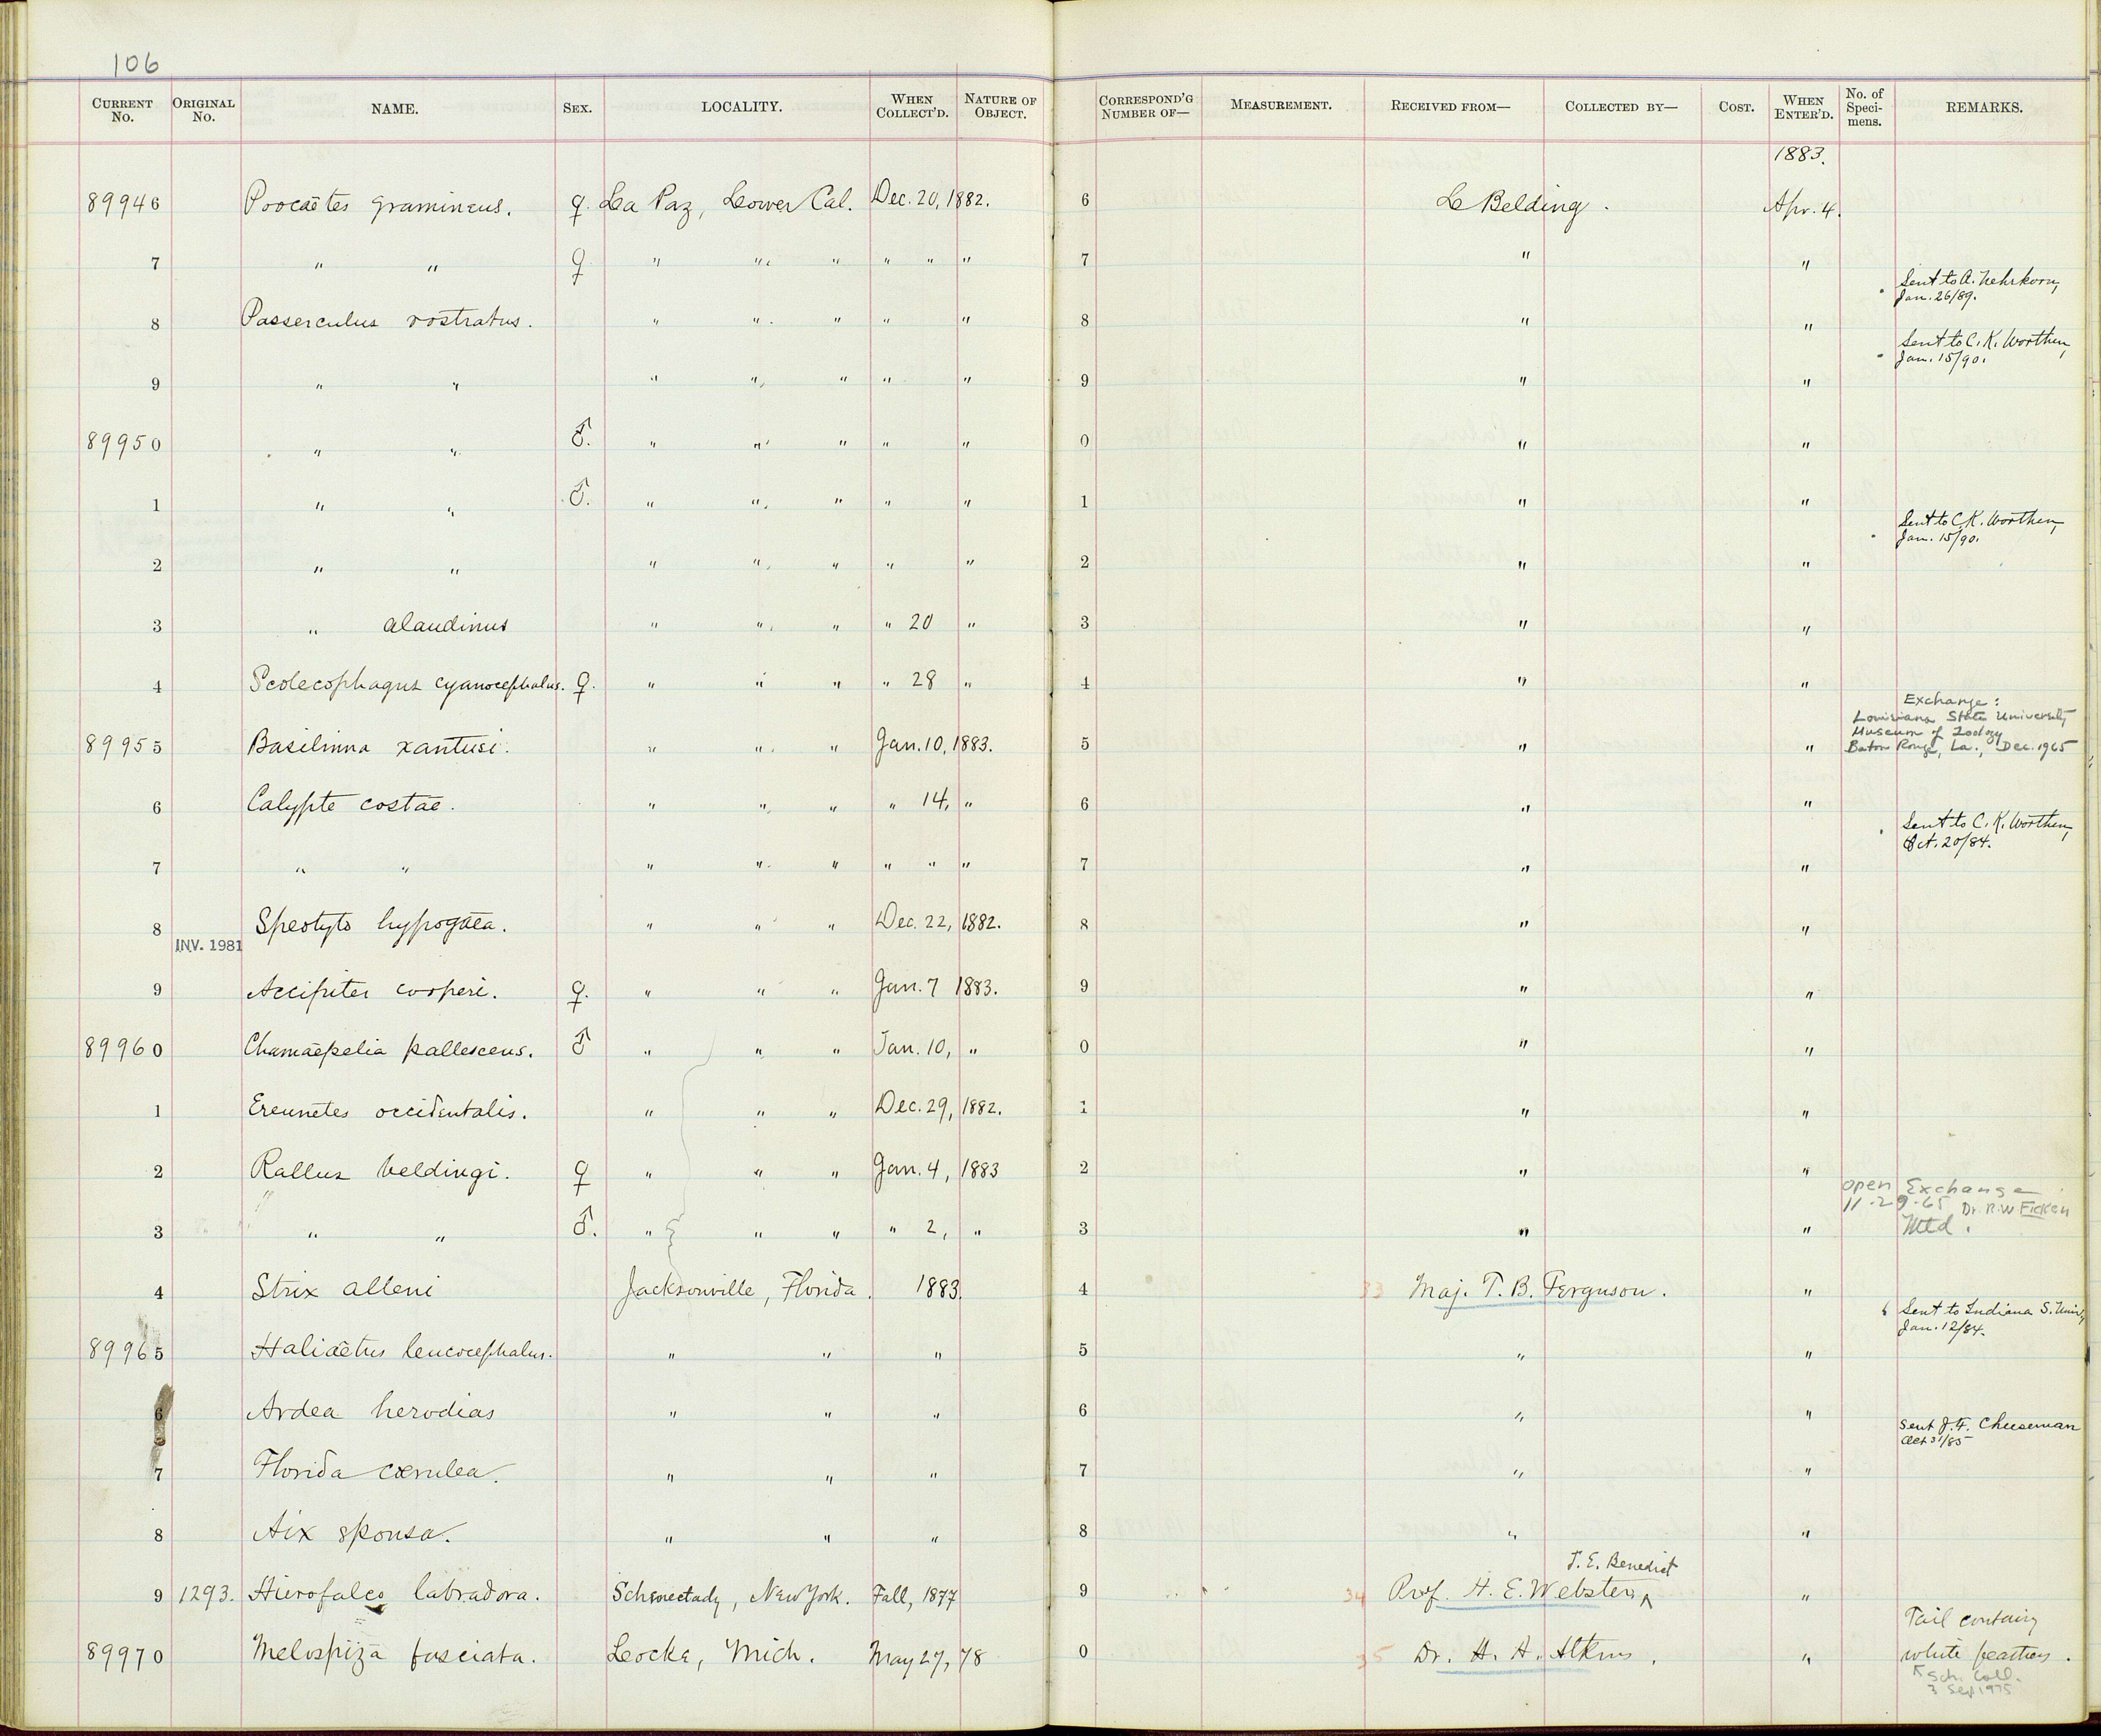 106
CURRENT No. ORIGINAL No. NAME. SEX. LOCALITY. WHEN COLLECT'D. NATURE OF OBJECT. CORRESPOND'G NUMBER OF— MEASUREMENT. RECEIVED FROM— COLLECTED BY— COST. WHEN ENTER'D. No. of Speci-mens. REMARKS.
1883.
89946 Poocaëtes gramineus. ♀. La Paz, Lower Cal. Dec. 20, 1882. 6 L Belding. Apr. 4.
7 " " ♀ " " " " " " 7 " " Sent to A. Nehrkorn, Jan. 26/89.
8 Passerculus rostratus. " " " " " 8 " " Sent to C. K. Worthen, Jan. 15/90.
9 " " " " " " " 9 " "
89950 " " ♂. " " " " " 0 " "
1 " " ♂. " " " " " 1 " " Sent to C. K. Worthen, Jan. 15/90.
2 " " " " " " " 2 " "
3 " alaudinus " " " " 20 " 3 " "
4 Scolecophagus cyanocephalus. ♀. " " " " 28 " 4 " "
Exchange:
Louisiana State University
Museum of Zoology
Baton Rouge, La., Dec. 1965
89955 Basilinna xantusi. " " " Jan. 10, 1883. 5 " "
6 Calypte costae. " " " " 14, " 6 " " Sent to C. K. Worthen, Oct. 20/84.
7 " " " " " " " " 7 " "
8 Speotyto hypogaea. " " " Dec. 22, 1882. 8 " "
INV. 1981
9 Accipiter cooperi. ♀. " " " Jan. 7 1883. 9 " "
89960 Chamaepelia pallescens. ♂ " " " Jan. 10, " 0 " "
1 Ereunetes occidentalis. " " " Dec. 29, 1882. 1 " "
2 Rallus beldingi. ♀ " " " Jan. 4, 1883 2 " "
open Exchange
11-29-65 Dr. R.W Ficken
3 " " ♂. " " " " 2, " 3 " " Mtd.
4 Strix alleni Jacksonville, Florida. 1883. 4 33 Maj. T. B. Ferguson. " Sent to Indiana S. Univ, Jan. 12/84.
89965 Haliaëtus leucocephalus. " " " 5 " "
6 Ardea herodias " " " 6 " " Sent J. F. Cheeseman Oct 31/85
7 Florida cærulea. " " " 7 " "
8 Aix sponsa. " " " 8 " "
J. E. Benedict
9 1293. Hierofalco labradora. Schenectady, New York. Fall, 1877 9 34 Prof. H. E. Webster, "
Tail contains
89970 Melospiza fasciata. Locke, Mich. May 27, 78 0 35 Dr. H. A. Atkins. " white feathers.
Sch. Coll.
3 Sep 1975